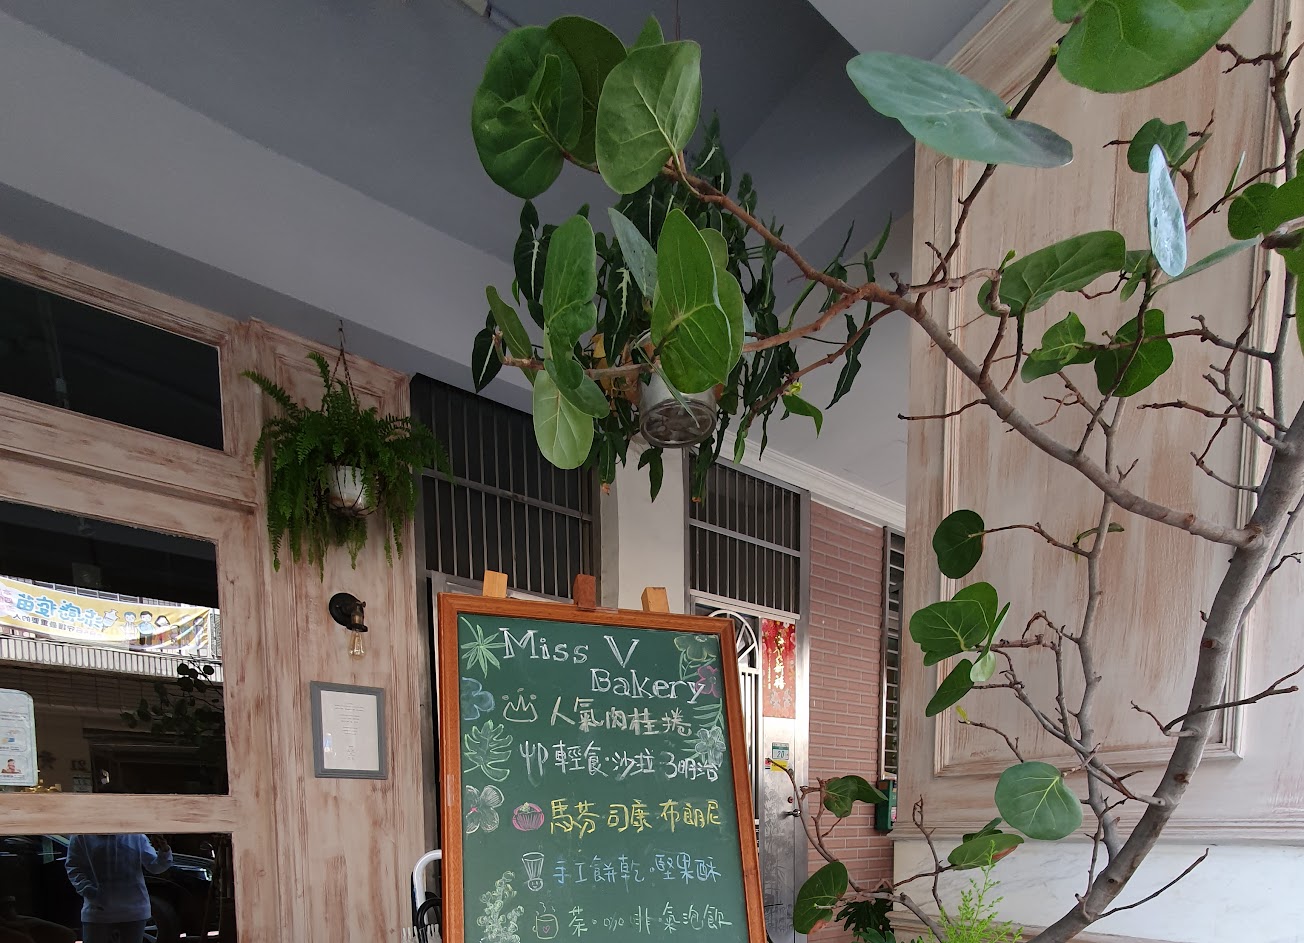 Miss V
Bakery
人氣肉桂捲
輕食·沙拉·3明治
馬芬 司康·布朗尼
手工餅乾·堅果酥
茶·咖啡·氣泡飲